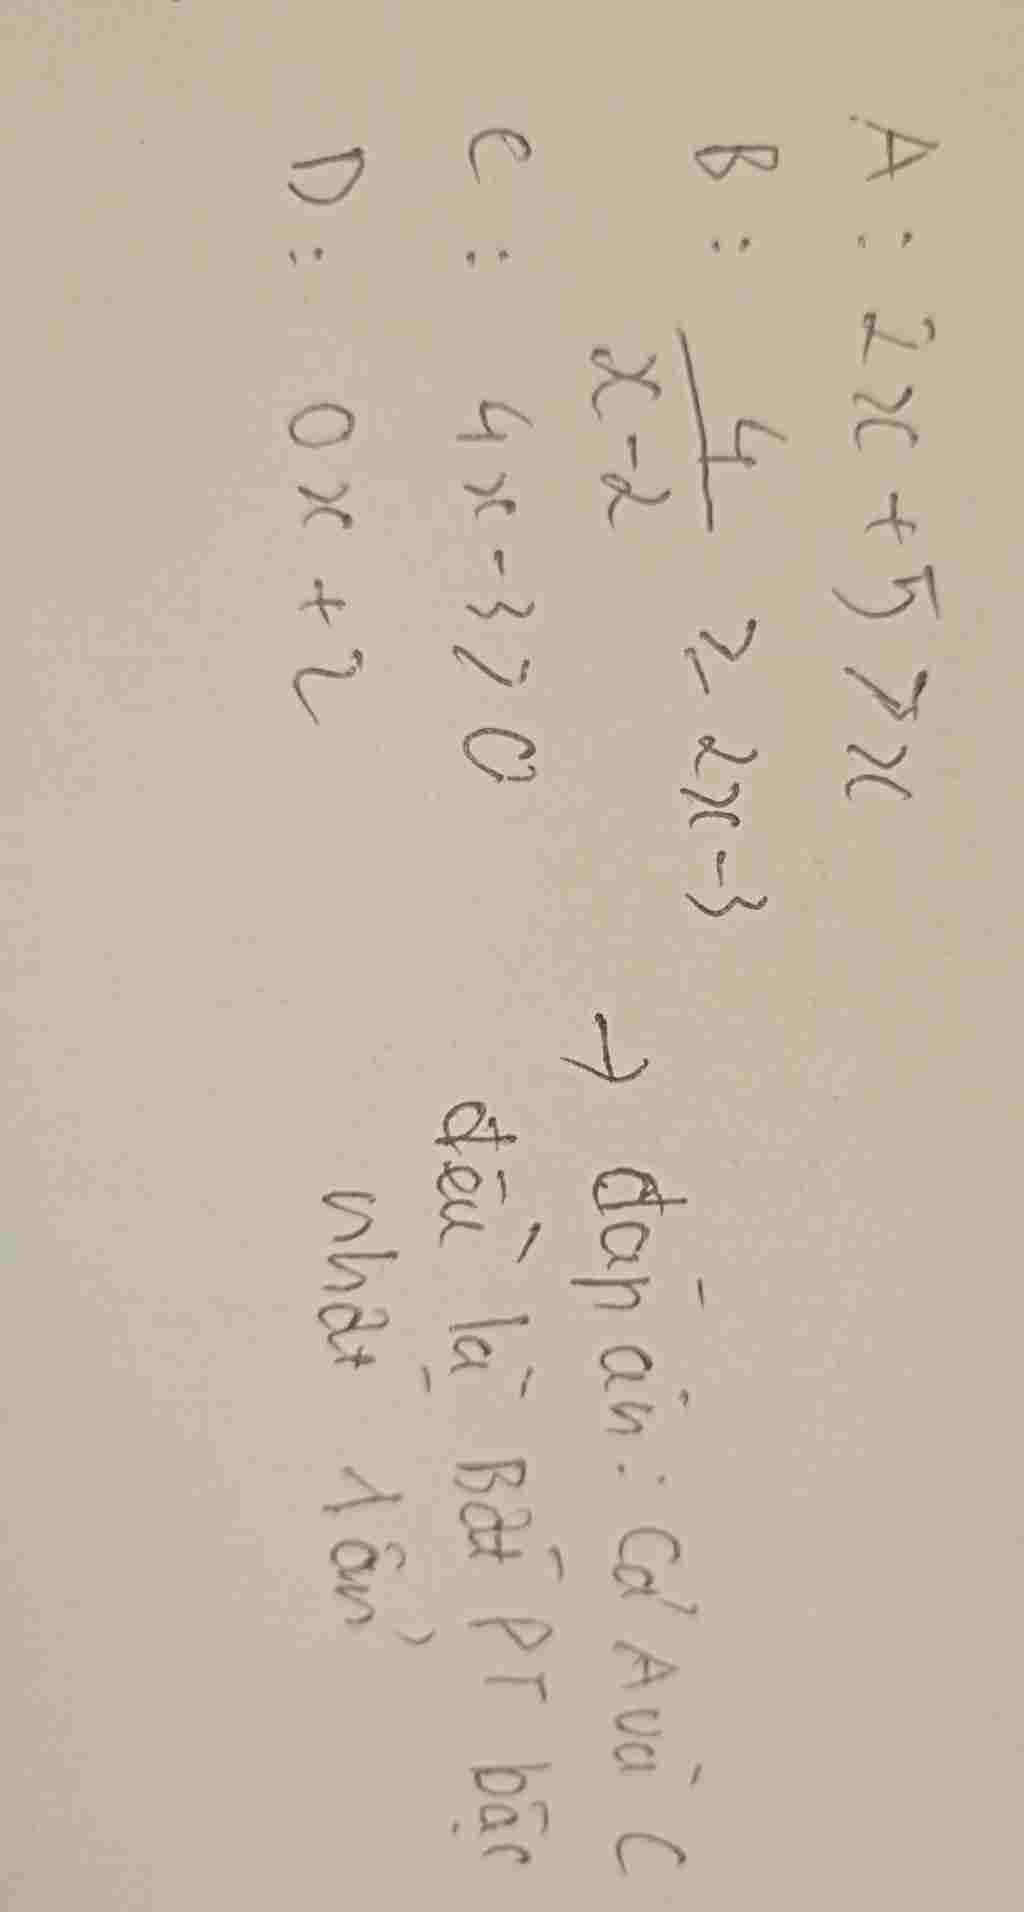 A: 2x + 5 > x
B: 4/(x-2) ≥ 2x-3
C: 4x-3 > 0
D: 0x + 2
→ đáp án: Cả A và C
đều là Bất PT bậc
nhất 1 ẩn